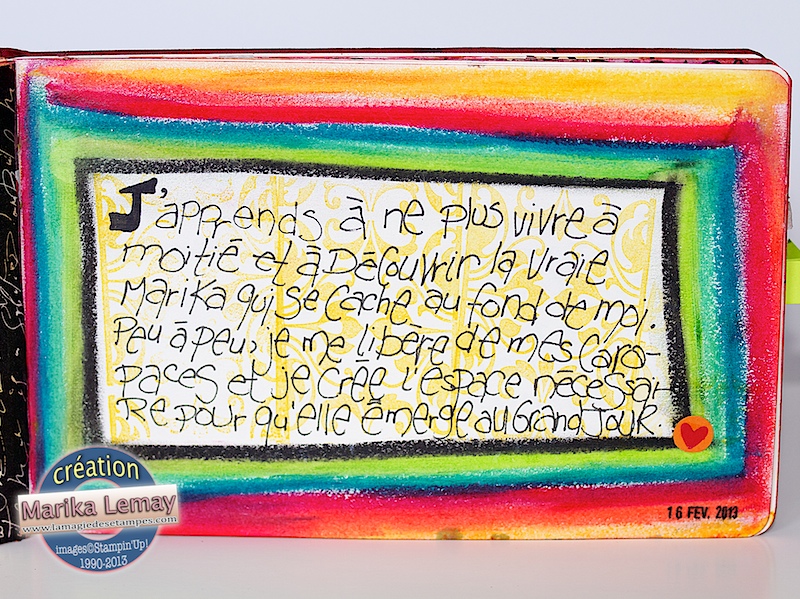 J'apprends à ne plus vivre à
moitié et à Découvrir la vraie
Marika qui se cache au fond de moi.
Peu à peu, je me libère de mes cara-
paces et je crée l'espace nécessai-
Re pour qu'elle émerge au Grand Jour.
16 FEV. 2013
création
Marika Lemay
www.lamagiedesetampes.com
images©Stampin'Up!
1990-2013